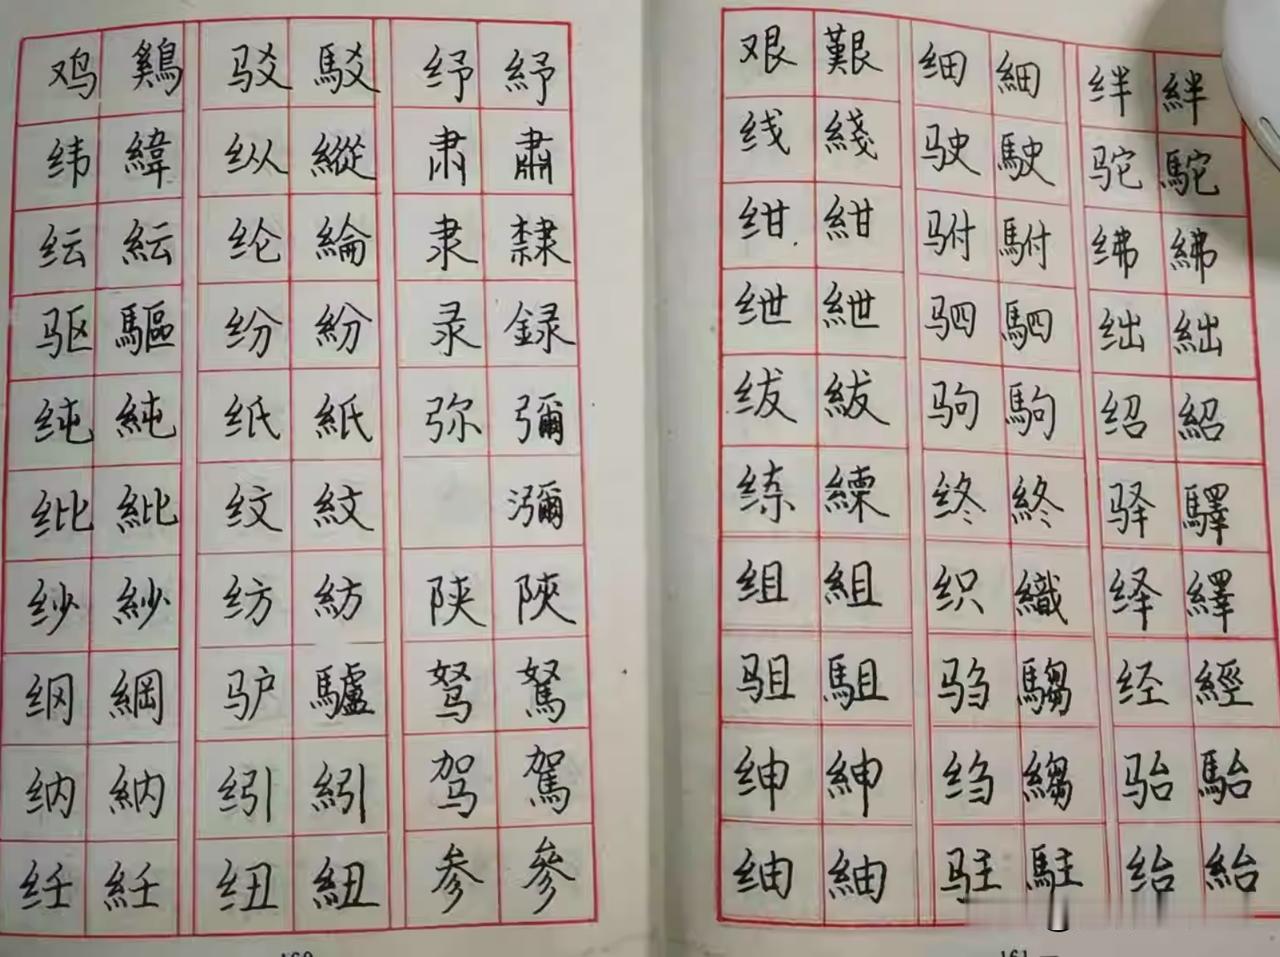 鸡 鷄 驳 駁 纾 紓
纬 緯 纵 縱 肃 肅
纭 紜 纶 綸 隶 隸
驱 驅 纷 紛 录 録
纯 純 纸 紙 弥 彌
纰 紕 纹 紋 瀰
纱 紗 纺 紡 陕 陝
纲 綱 驴 驢 驽 駑
纳 納 纼 紖 驾 駕
纴 紝 纽 紐 参 參
艰 艱 细 細 绊 絆
线 綫 驶 駛 驼 駝
绀 紺 驸 駙 绋 紼
绁 紲 驷 駟 绌 絀
绂 紱 驹 駒 绍 紹
练 練 终 終 驿 驛
组 組 织 織 绎 繹
驵 駔 驺 騶 经 經
绅 紳 绉 縐 骀 駘
䌷 紬 驻 駐 绐 紿